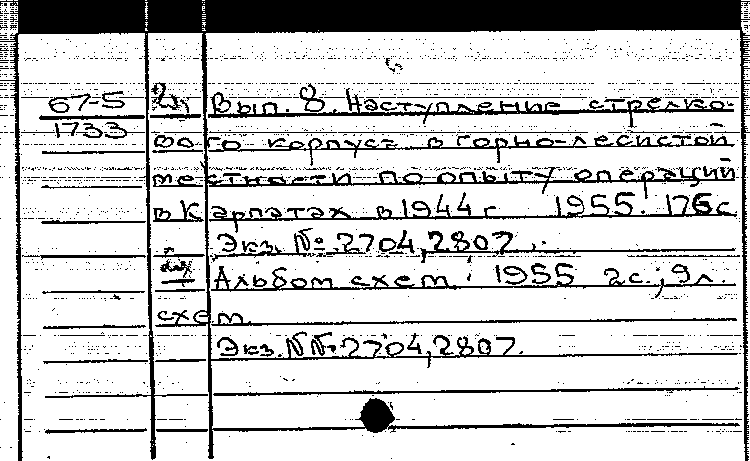 67-5 2н Вып. 8. Наступление стрелко-
1733 вого корпуса в горно-лесистой
местности по опыту операций
в Карпатах в 1944 г 1955. 176с
Экз. № 2704, 2807.
Альбом схем. 1955 2с.; 9л.
схем.
Экз. №№ 2704, 2807.